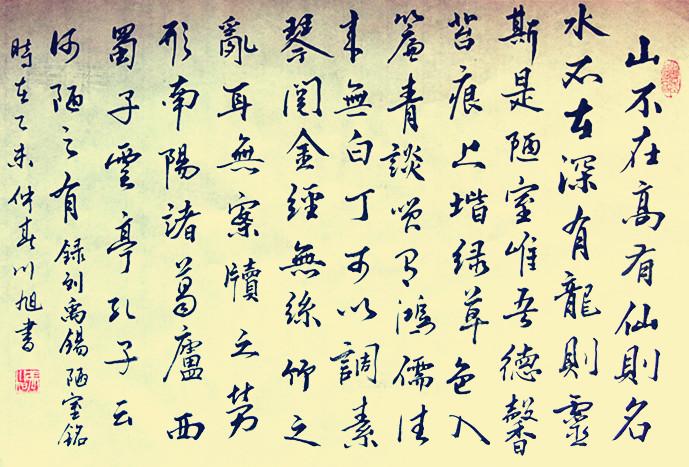 山不在高有仙則名
水不在深有龍則靈
斯是陋室惟吾德馨
苔痕上堦緑草色入
簾青談笑有鴻儒往
来無白丁可以調素
琴閲金經無絲竹之
亂耳無案牘之勞
形南陽諸葛廬西
蜀子雲亭孔子云
何陋之有 録刘禹錫陋室銘
時在乙未仲春川旭書